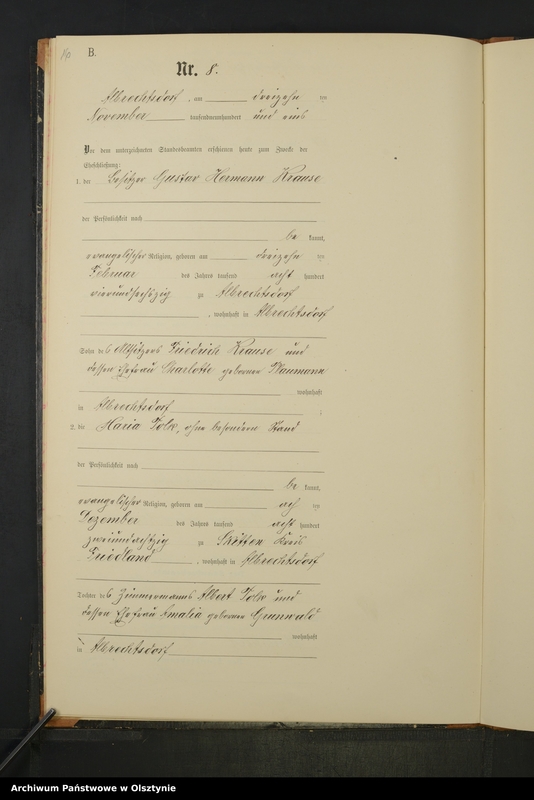 B.
Nr. 8.
Albrechtsdorf, am dreizehn ten
November tausendneunhundert und eins
Vor dem unterzeichneten Standesbeamten erschienen heute zum Zwecke der
Eheschließung:
1. der Besitzer Gustav Hermann Krause
der Persönlichkeit nach
be kannt,
evangelischer Religion, geboren am dreizehn ten
Februar des Jahres tausend acht hundert
vierundsechszig zu Albrechtsdorf
, wohnhaft in Albrechtsdorf
Sohn des Altsitzers Friedrich Krause und
dessen Ehefrau Charlotte geborenen Naumann
wohnhaft
in Albrechtsdorf ;
2. die Maria, ohne besonderen Stand
der Persönlichkeit nach
be kannt,
evangelischer Religion, geboren am ach ten
Dezember des Jahres tausend acht hundert
zweiundachtzig zu Kreis
Friedland, wohnhaft in Albrechtsdorf
Tochter des Zimmermanns Albert und
dessen Ehefrau Amalia geborenen Grunwald
wohnhaft
in Albrechtsdorf
Archiwum Państwowe w Olsztynie